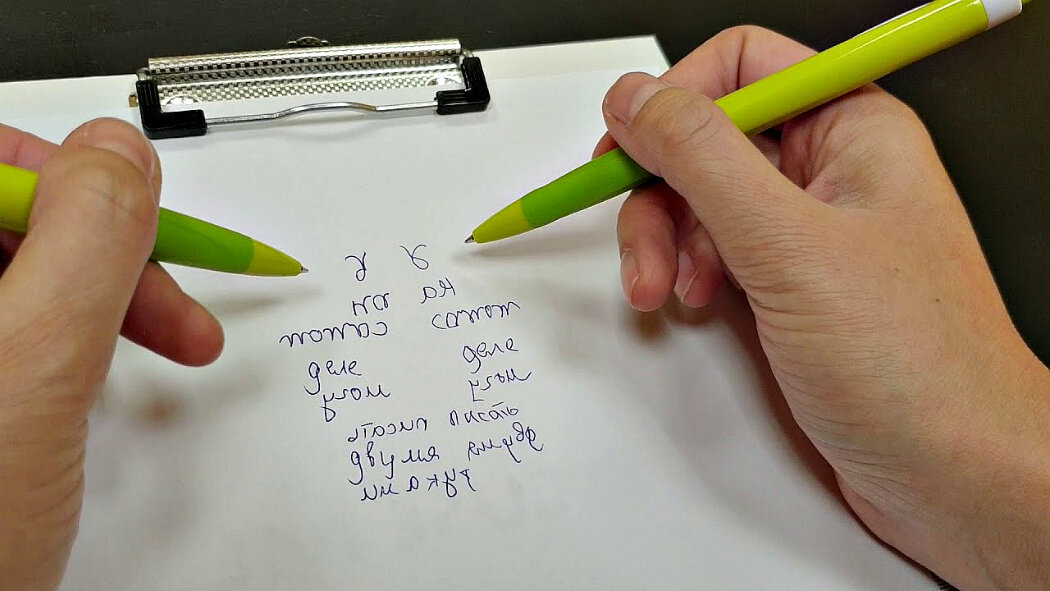 я я
на на
самом самом
деле деле
могу могу
писать писать
двумя двумя
руками